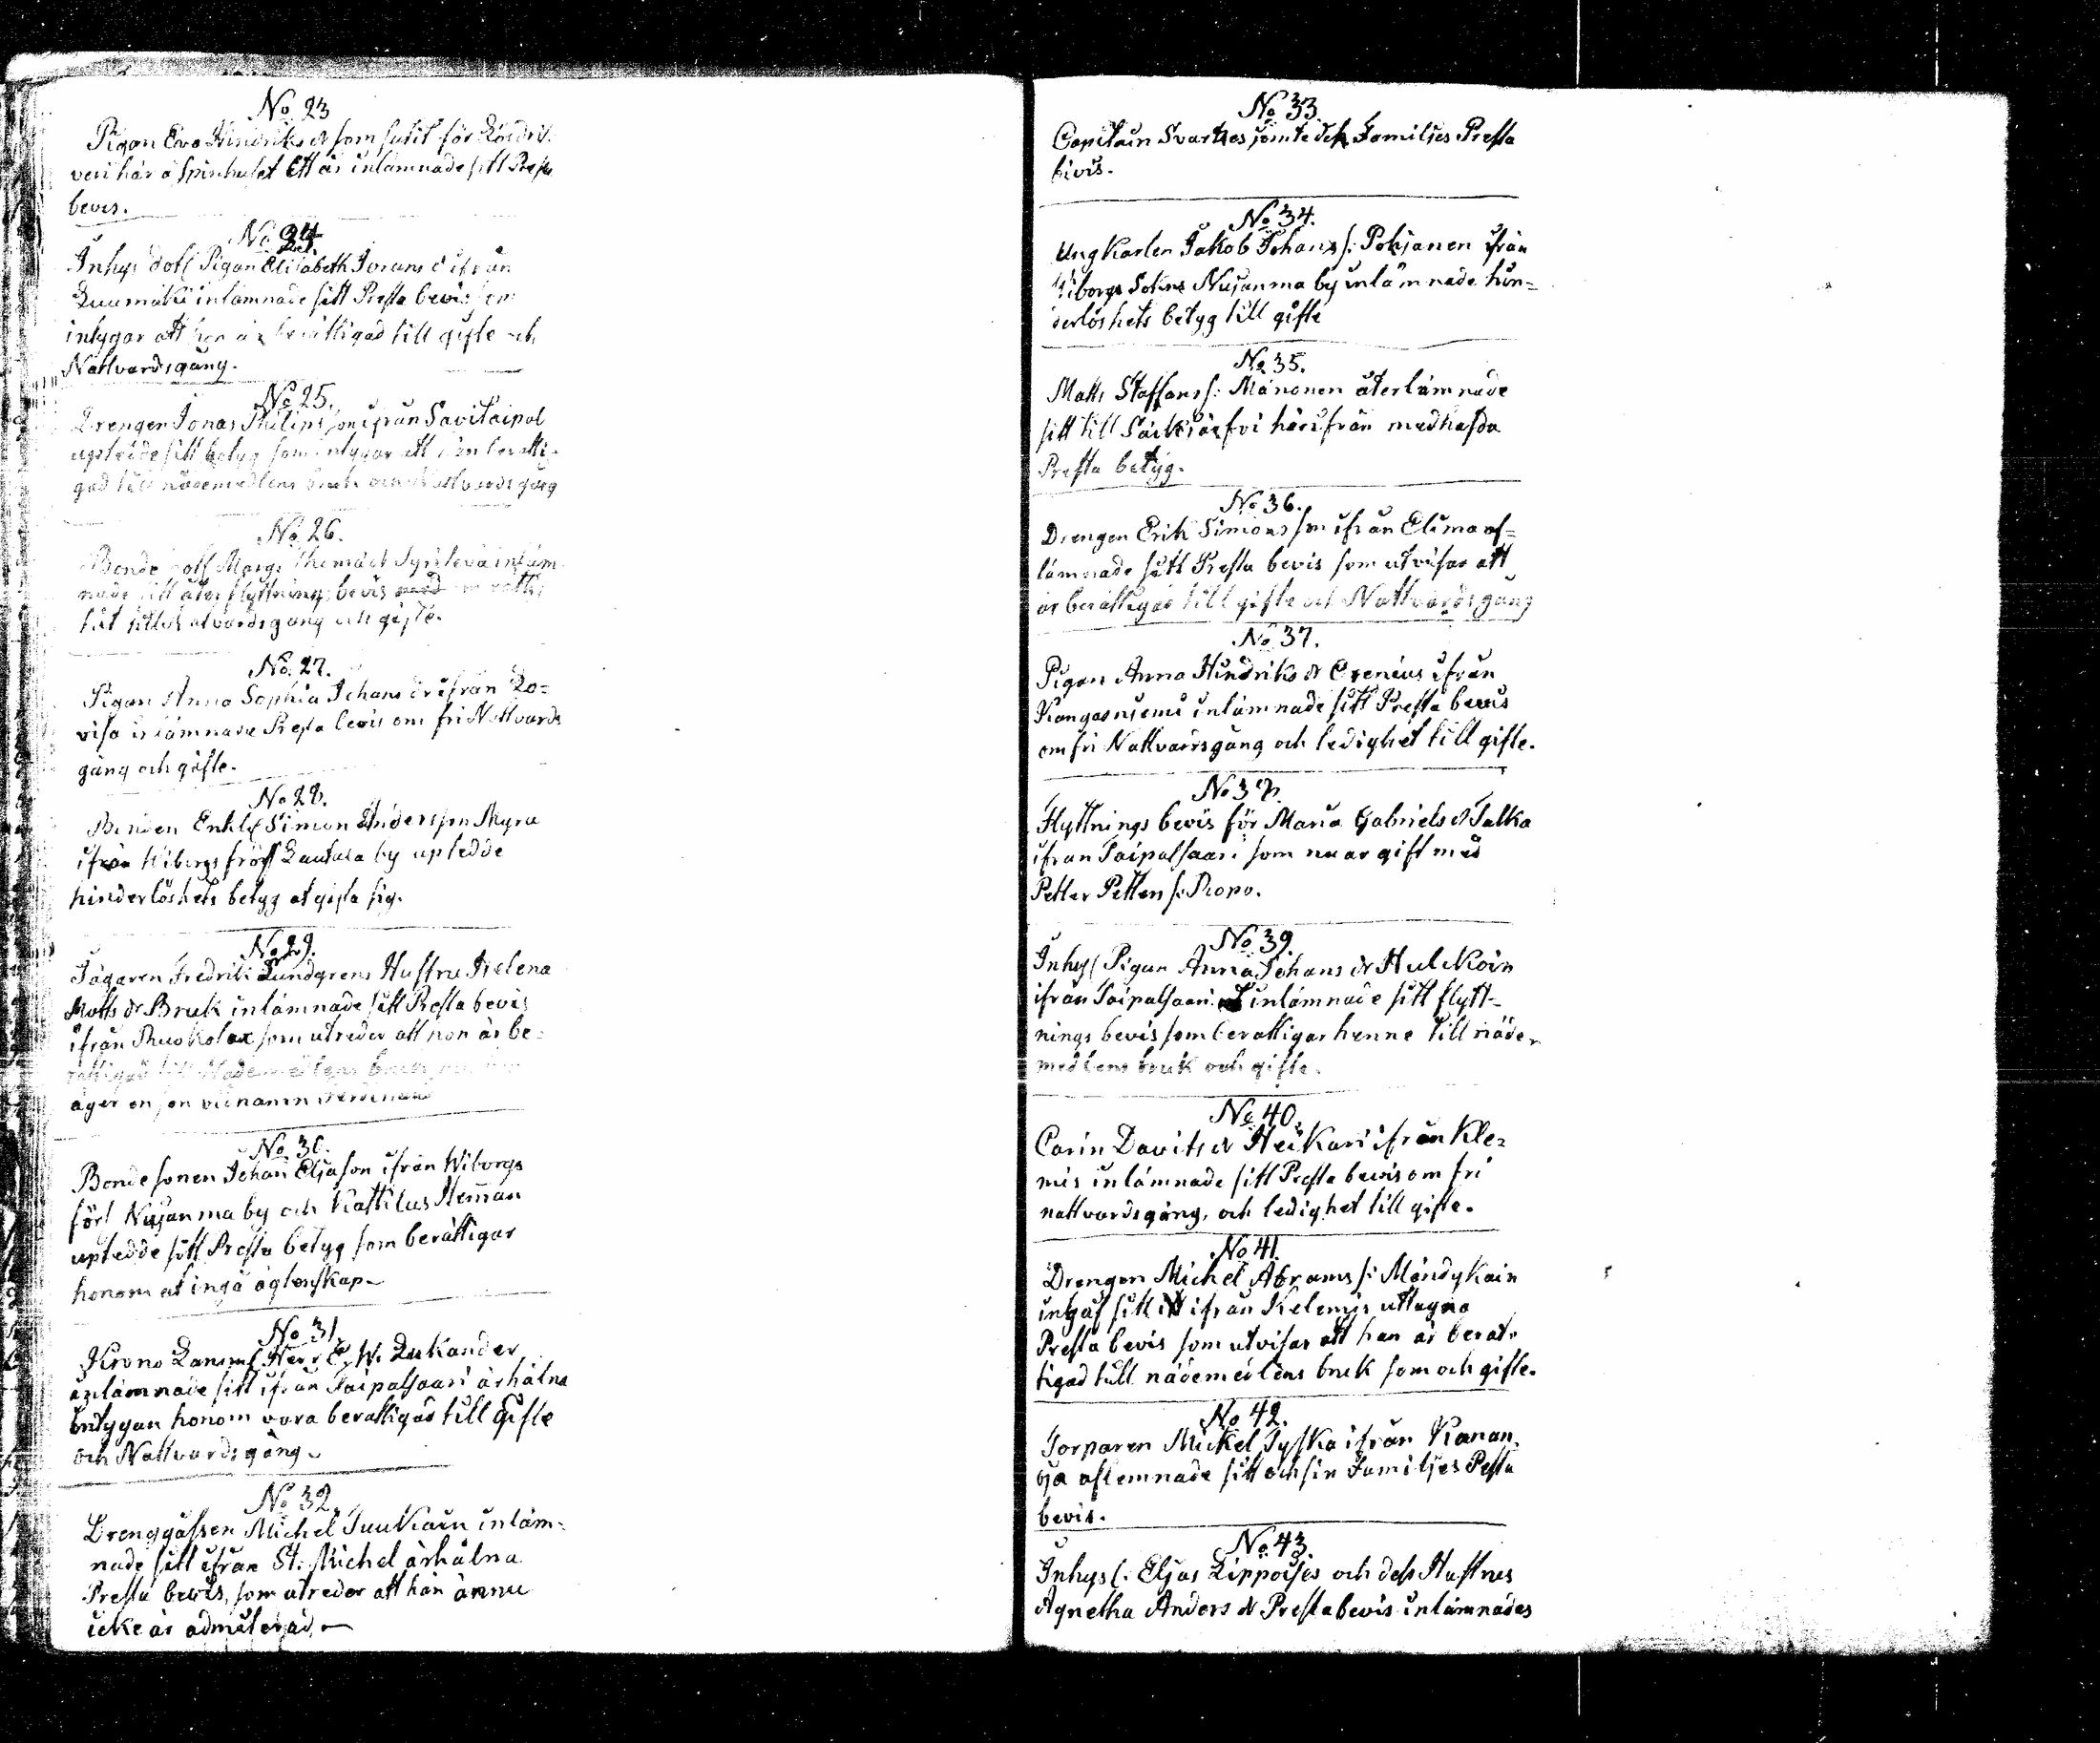 No 23
Pigan Eva Hindriks dr som sutit för
veri här å Spinhuset Ett år inlämnade sitt Presta
bevis.
No 24
Inhys dotl Pigan Elisabeth Jorans d ifrån
Luumäki inlämnade sitt Presta bevis som
intygar att hon är berättigad till gifte och
Nattvardsgång.
No 25.
Drengen Jonas Philips son ifrån Savitaipal
uptedde sitt betyg som intygar att han berätti-
gad till nådemedlens bruk och Nattvards gång
No 26.
Bonde dotl Marg. Thomä dr inläm
nade sitt åter flyttnings bevis med
het till Natvardsgång och gifte.
No. 27.
Pigan Anna Sophia Johans dr ifrån Lo=
visa inlämnade Presta bevis om fri Nattvards
gång och gifte.
No 28.
Bonden Enkl Simon Anders son Myra
ifrån Wiborgs Lautala by uptedde
hinderlöshets betyg at gifta sig.
No 29.
Jägaren Fredrik Lundgrens Hustru Helena
Matts dr Bruk inlämnade sitt Presta bevis
ifrån Ruokolax som utreder att hon är be=
rättigad till Nådemedlens bruk
äger en son vid namn Ferdinand
No 30.
Bonde sonen Johan Eljason ifrån Wiborgs
förs Nuijanma by och Kattilus Hemman
uptedde sitt Presta betyg som berättigar
honom at ingå ägtenskap
No 31.
Krono Lansm Herr C. W. Lukander
inlämnade sitt ifrån Taipalsaari ärhålna
intygan honom vara berattigad till Gifte
och Nattvardsgång
No 32.
Drenggåssen Michel Tuukain inläm-
nade sitt ifrån St. Michel ärhålna
Presta bevis, som utreder att han ännu
icke är admiterad
No 33.
Capitain Svartzes jemte dess Familjes Presta
bivis.
No 34.
Ung Karlen Jakob Johans s: Pohjanen ifrån
Viborgs Sokns Nuijanma by inlämnade hin=
derlöshets betyg till gifte
No 35.
Matts Staffans s: Mänonen återlämnade
sitt till Säckjärfvi härifrån medhafda
Presta betyg.
No 36.
Drengen Erik Simons son ifrån Elima af=
lämnade sitt Presta bevis som utvisar att
är berättigad till gifte och Nattvardsgång
No 37.
Pigan Anna Hindriks dr Crenius ifrån
Kangasniemi inlämnade sitt Presta bevis
om fri Nattvardsgång och ledighet till gifte.
No 38.
Flyttnings bevis för Maria Gabriels dr Talka
ifrån Taipalsaari som nu är gift med
Petter Petters s: Ropo.
No 39.
Inhys Pigan Anna Johans dr Hulckoin
ifrån Taipalsaari inlämnade sitt flytt-
nings bevis som berattigar henne till nåde-
medlens bruk och gifte.
No 40.
Carin Davits dr Heikari ifrån Kle=
mis inlämnade sitt Presta bevis om fri
nattvardsgång, och ledighet till gifte.
No 41.
Drengen Michel Abrams s: Mändykain
ingaf sitt ifrån Kelemis uttagna
Presta bevis som utvisar att han är berät-
tigad till nådemedlens bruk som och gifte.
No 42.
Torparen Mickel Tyska ifrån Kanan,
oja aflemnade sitt och sin Familjes Pesta
bevis.
No 43
Inhys s: Eljas Lippoises och dess Hustrus
Agnetha Anders dr Presta bevis inlämnades